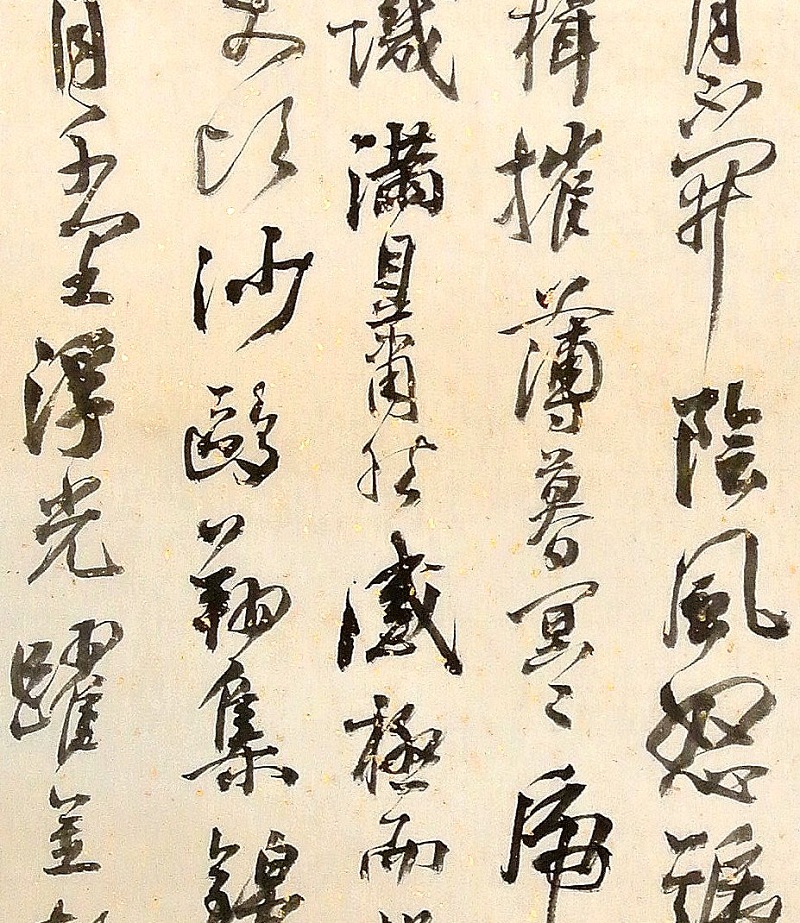 月不開陰風怒號
楫摧薄暮冥〻虎
譏滿目蕭然感極而
又頃沙鷗翔集錦
月千里浮光躍金